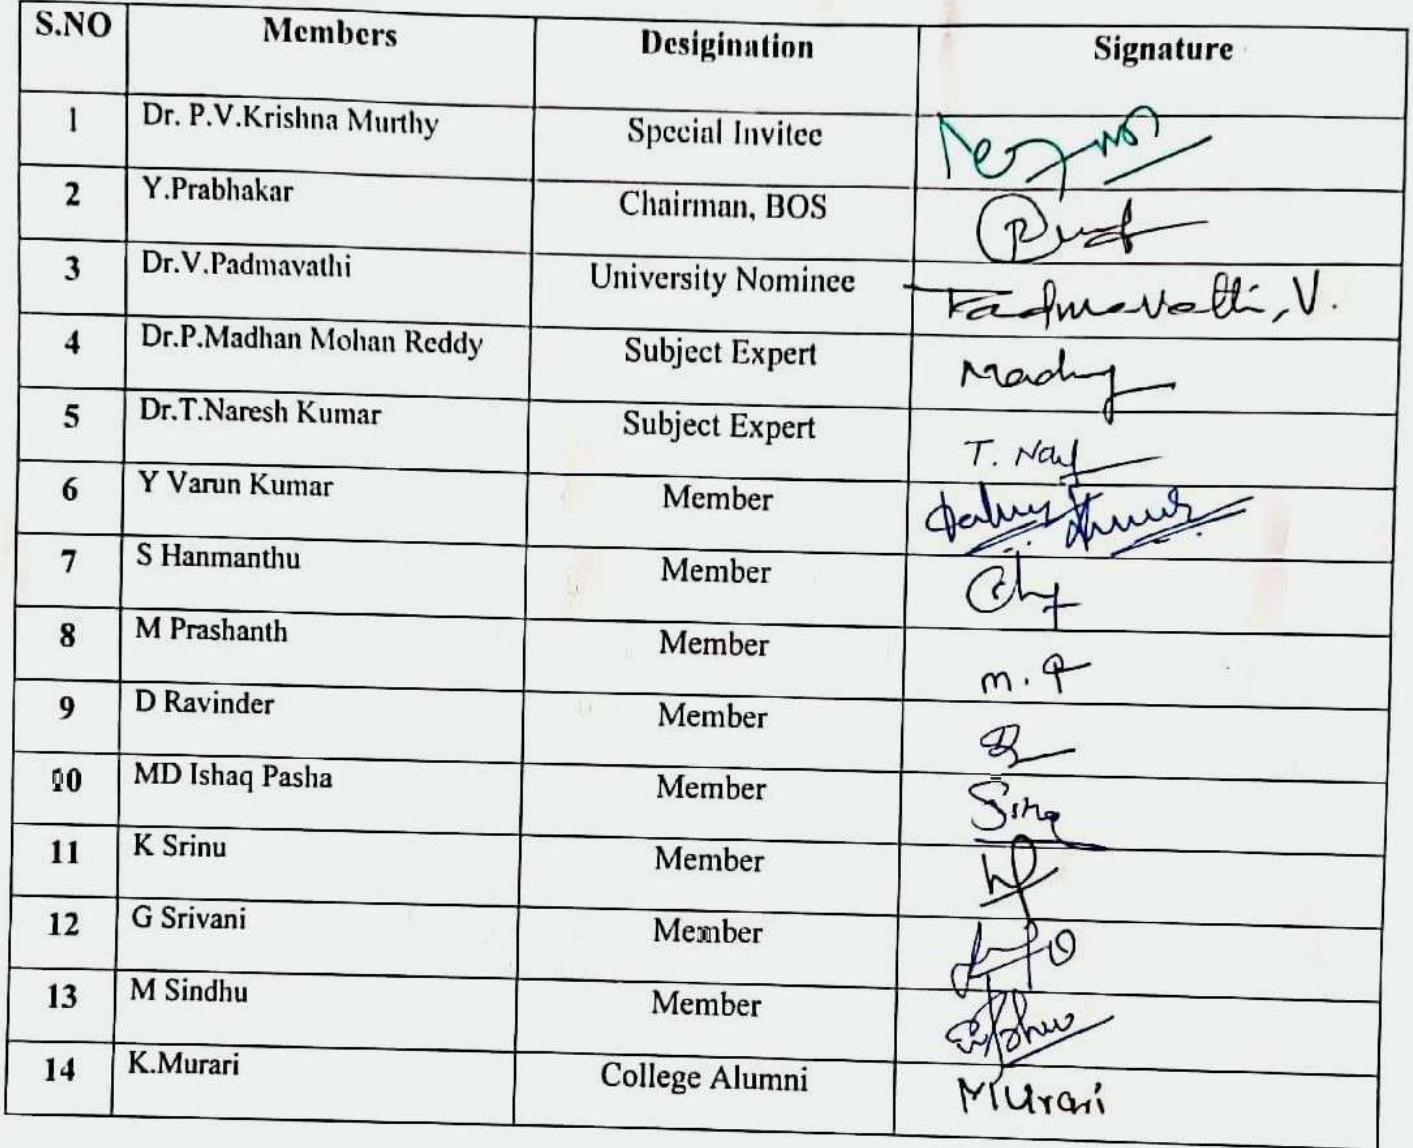 S.NO Members Desigination Signature
1 Dr. P.V.Krishna Murthy Special Invitee
2 Y.Prabhakar Chairman, BOS
3 Dr.V.Padmavathi University Nominee Padmavathi, V.
4 Dr.P.Madhan Mohan Reddy Subject Expert
5 Dr.T.Naresh Kumar Subject Expert T.
6 Y Varun Kumar Member
7 S Hanmanthu Member
8 M Prashanth Member m. P
9 D Ravinder Member
10 MD Ishaq Pasha Member
11 K Srinu Member
12 G Srivani Member
13 M Sindhu Member
14 K.Murari College Alumni Murari